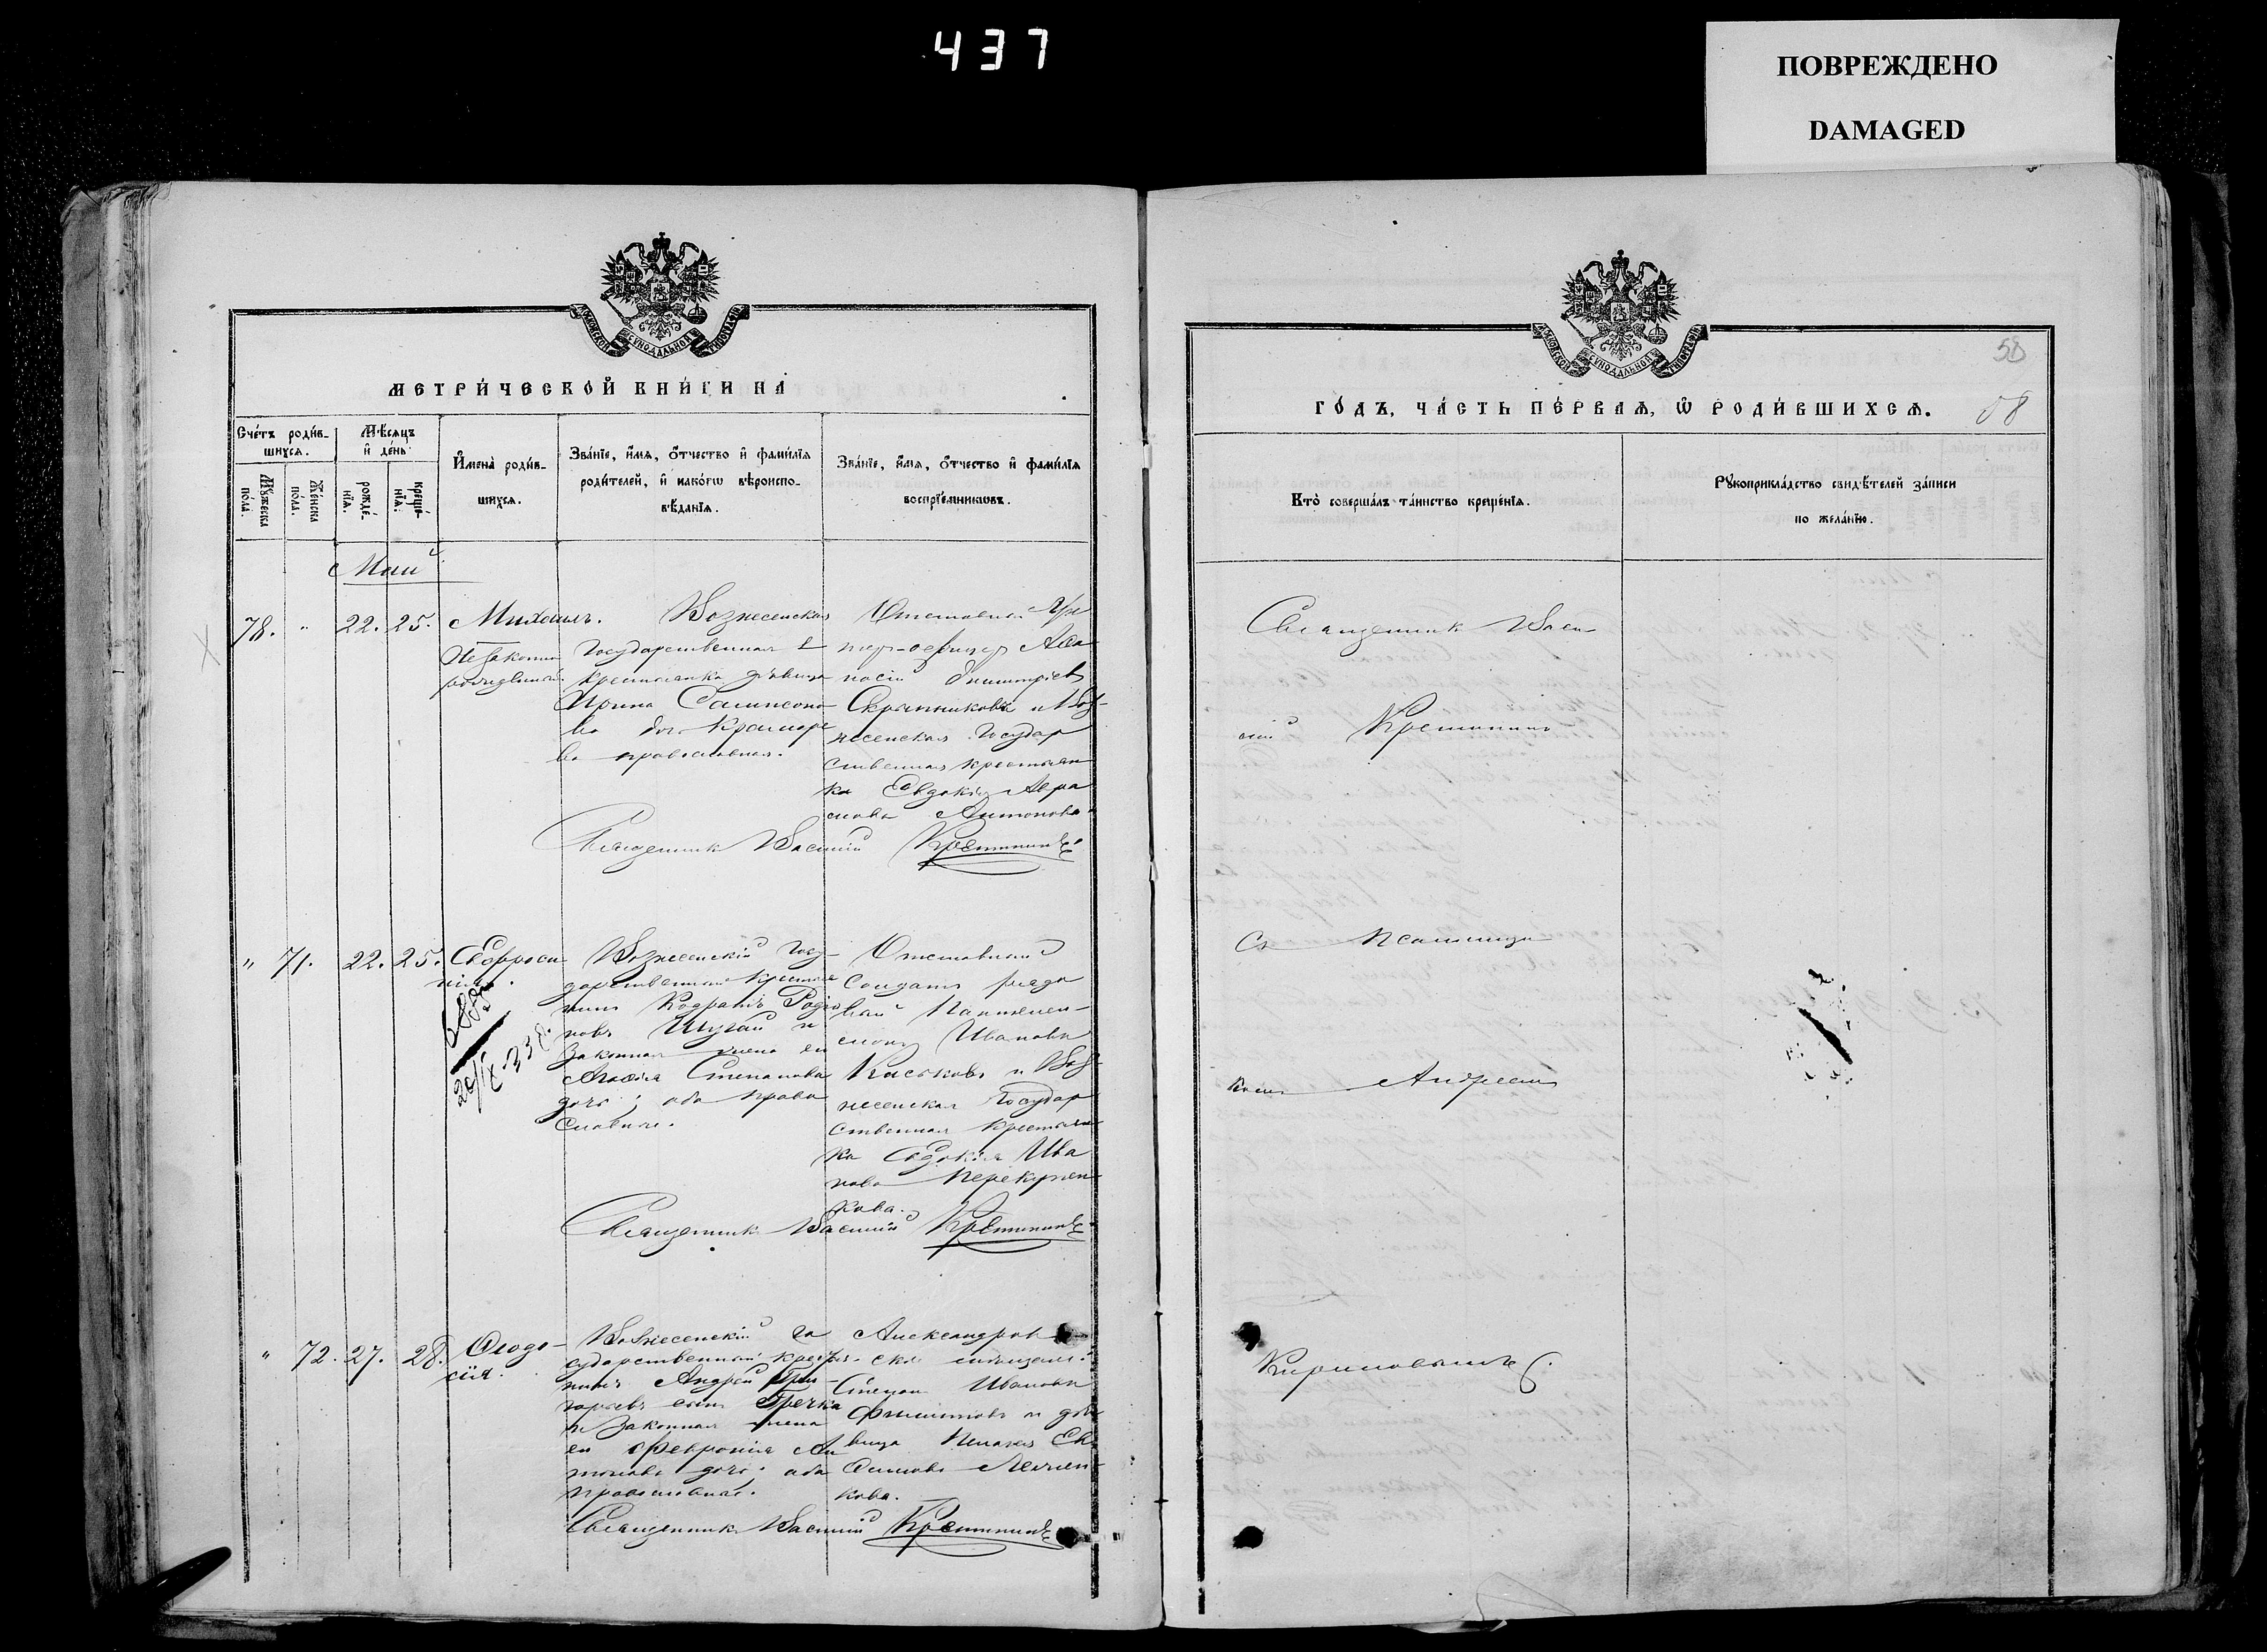 437
ПОВРЕЖДЕНО
DAMAGED
МЕТРИ́ЧЕСКОЙ КНИ́ГИ НА
Сче́тъ роди́в-
шихся.
Мѣ́сяцъ
и҆ де́нь
Мꙋ́жеска
по́ла.
Же́нска
по́ла.
рожде́-
нїѧ.
креще́-
нїѧ.
И҆мена̀ роди́в-
шихсѧ.
Зва́нїе, и҆́мѧ, о҆́тчество и҆ фами́лїѧ
роди́телей, и҆ како́гѡ вѣроиспо-
вѣ́данїѧ.
Зва́нїе, и҆́мѧ, о҆́тчество и҆ фами́лїѧ
воспрїе́мникωвъ.
Май
78. " 22. 25.
Михаилъ.
Незаконно
рожденный
Вознесенская
Государственная
крестьянка девица
Ирина Самисоно
ва дочь Крамаре
ва православная.
Отставной Ун
тер-офицер Афа
насій Димитріев
Скрынниковъ и Воз-
несенская Государ
ственная крестьян
ка Евдокія Авра
мова Антонова
Священник Василій Крестининъ
" 71. 22. 25.
Евфроси
нія.
Вознесенскій Госу-
дарственный крестья
нинъ Кодратъ Родіо
новъ Шугай и
законная жена его
Агафія Степанова
дочь; оба право
славные.
Отставный
Солдатъ рядо
вой Пантелей-
монъ Ивановъ
Каськовъ и Воз-
несенская Государ
ственная крестьян
ка Евдокія Ива
нова Перекупен
кова.
Священник Василій Крестининъ
" 72. 27. 28.
Ѳеодо-
сія.
Вознесенскій Го
сударственный крестья-
нинъ Андрей Гри-
горьевъ сынъ Гречка
и законная жена
его Февронія Ан
тонова дочь; оба
православные.
Александров
скій мѣщанинъ
Стефан Ивановъ
Филиповъ и дѣ
вица Пелагія Ев
фимова Левчен-
кова.
Священник Василій Крестининъ
58
ГО́ДЪ, ЧА́СТЬ ПЕ́РВАѦ, Ѽ РОДИ́ВШИХСѦ.
58
Кто̀ соверша́лъ та́инство креще́нїѧ.
Рꙋкоприкла́дство свидѣ́телей за́писи
по жела́нїю.
Священник Васи
лій Крестининъ
Съ Псаломщи
комъ Андреемъ
Кириловымъ